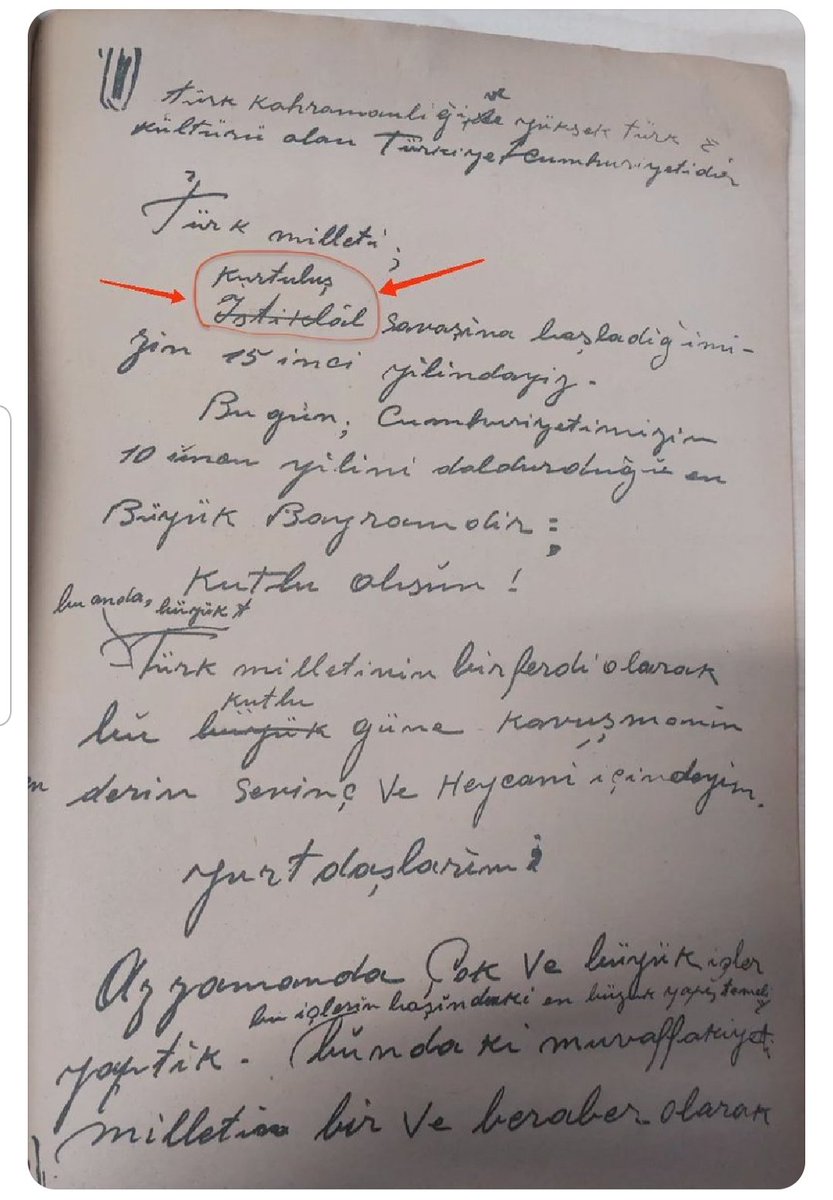 türk kahramanlığı, ve yüksek türk
kültürü olan Türkiye Cumhuriyetidir
Türk milleti;
Kurtuluş
İstiklâl savaşına başladığımı-
zın 15 inci yılındayız.
Bu gün; Cumhuriyetimizin
10 uncu yılını doldurduğu en
Büyük Bayramdır:
Kutlu olsun!
bu anda, büyük t
Türk milletinin bir ferdi olarak
kutlu
bu büyük güne kavuşmanın
en derin sevinç ve Heycanı içindeyim.
yurtdaşlarım:
Az zamanda Çok ve büyük işler
bu işlerin başındaki en büyük
yaptık. bundaki muvaffakiyet
milletin bir ve beraber olarak